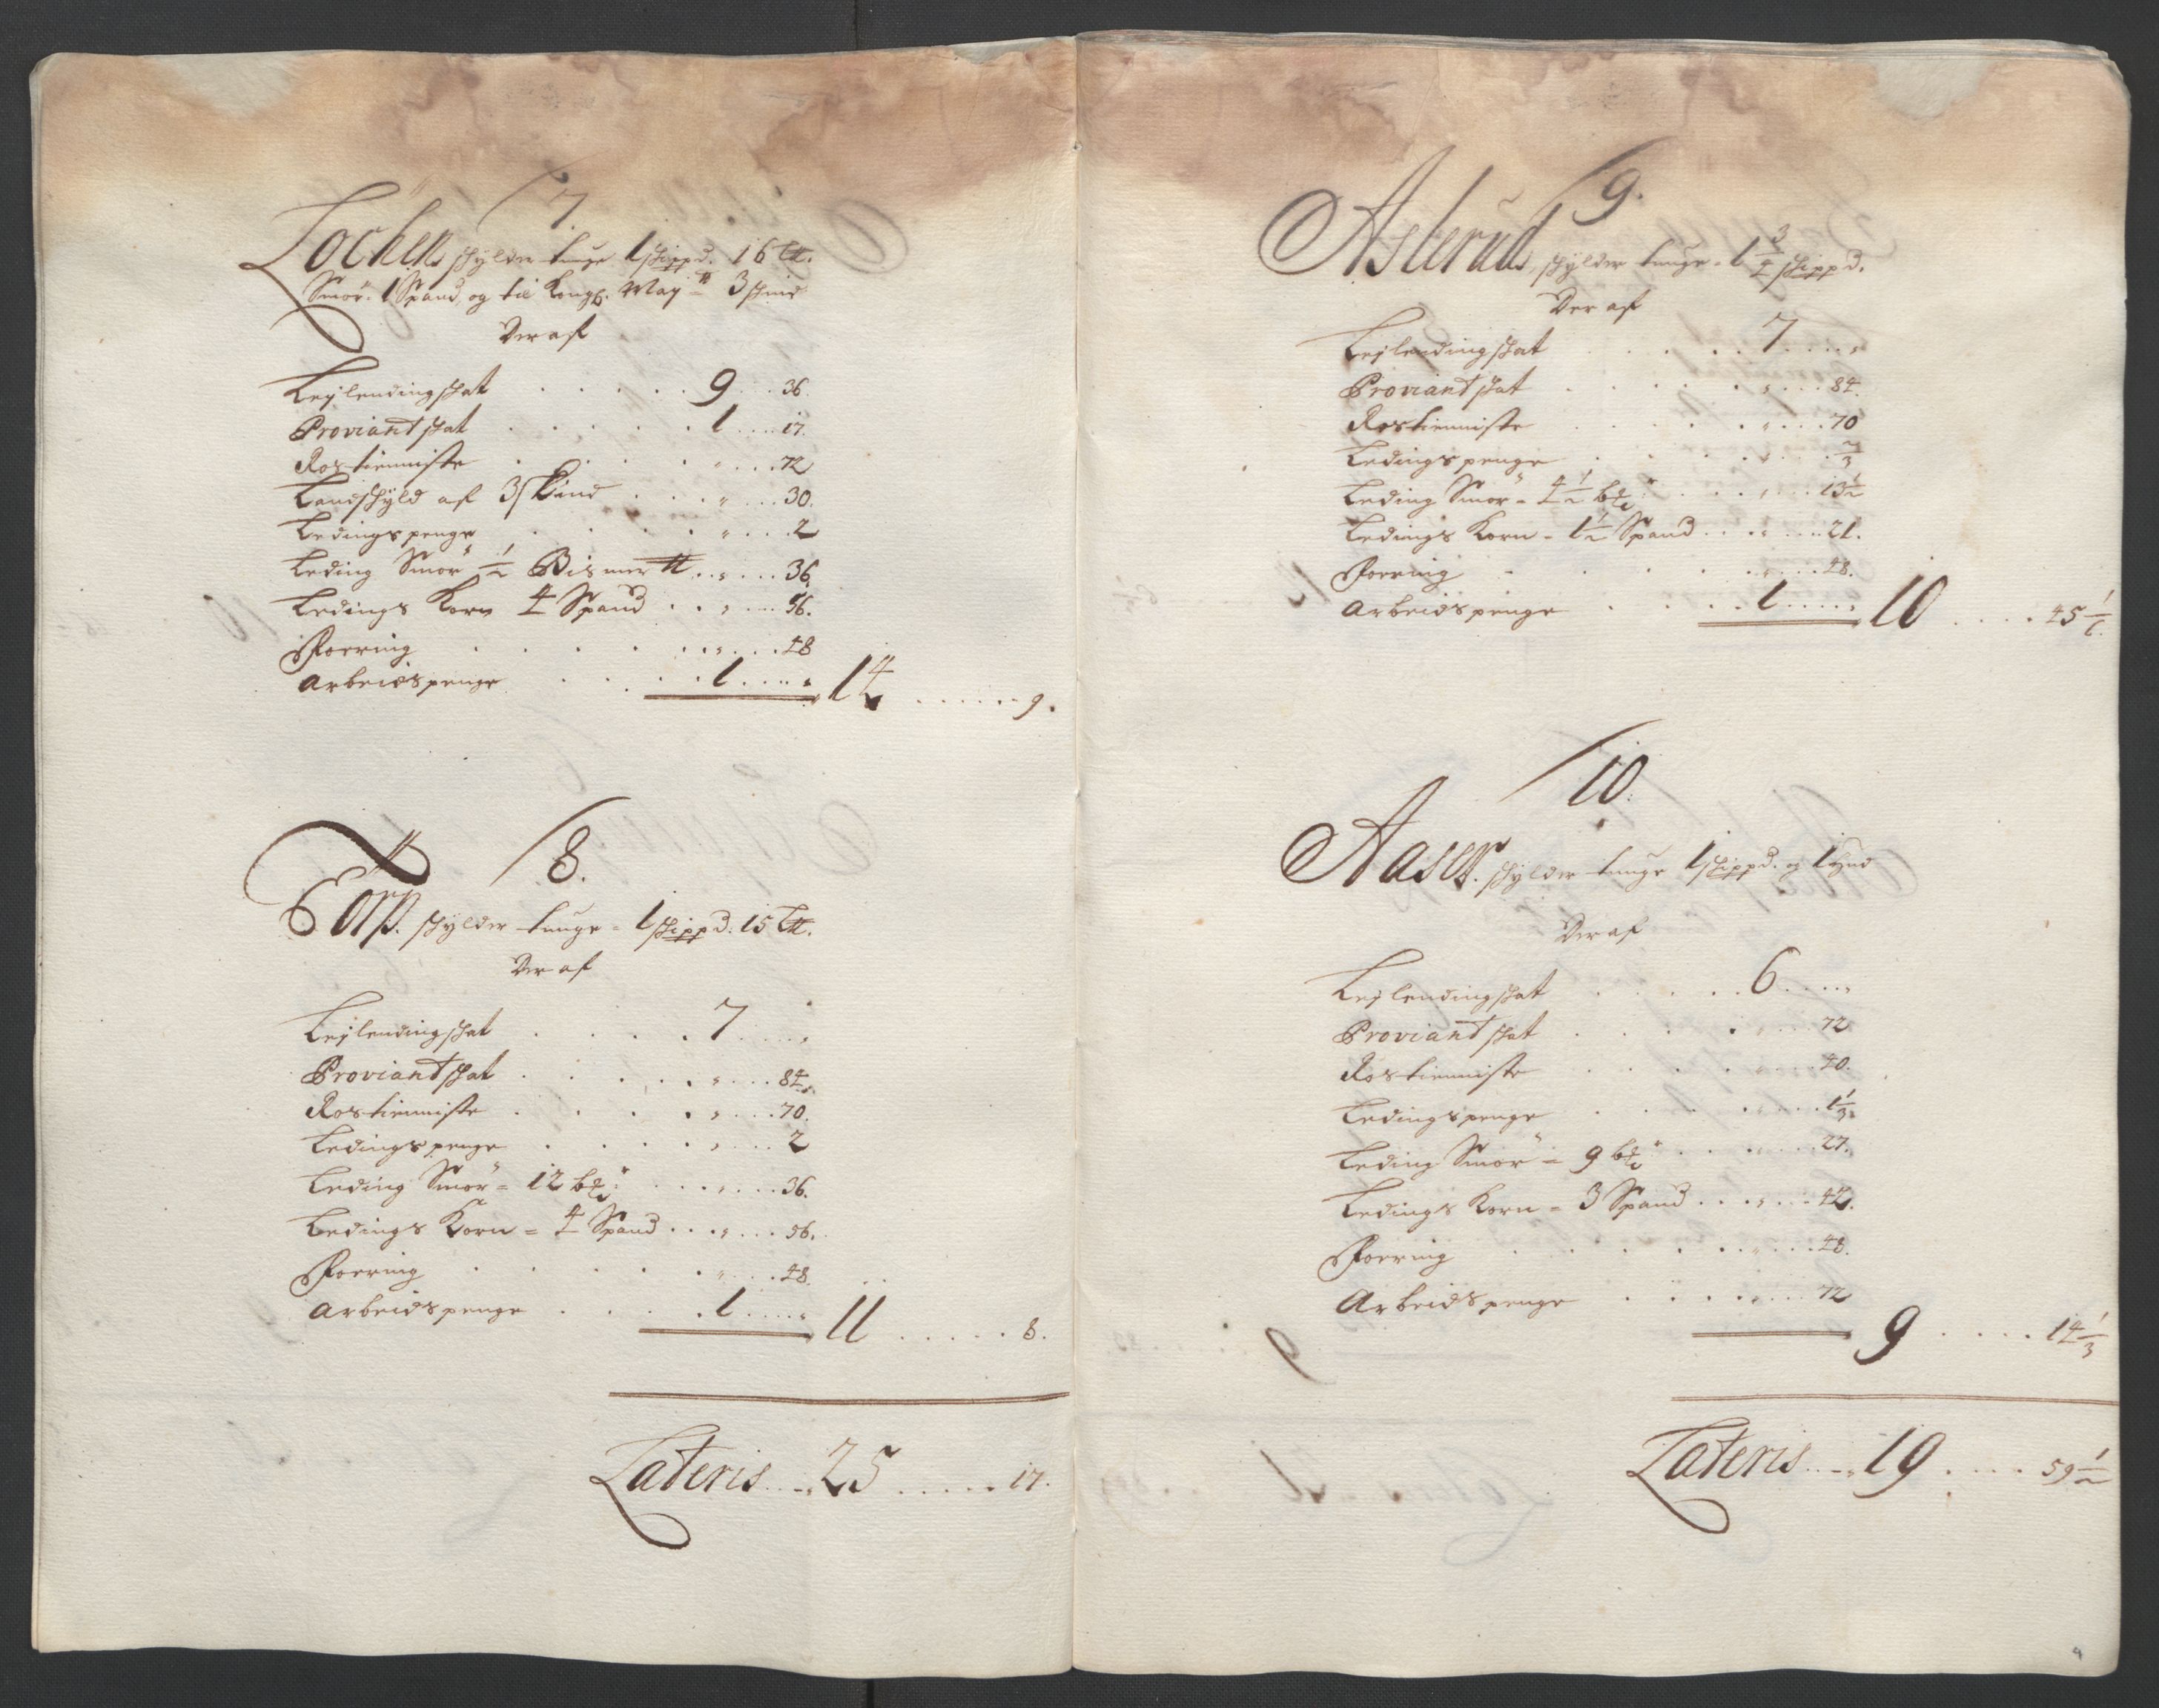 7.
Lochen skylder tunge 1 skippd. 16 ℔.
Smör. 1 Spand, og til Kongl. May.tt 3 skind
Der af
Leylendingskat . . . . . 9 . . . 36.
Proviantskat . . . . . 1 . . . 17.
Rostienniste . . . . „ . . . 72
Landskyld af 3 skind . . . „ . . . 30.
Ledingspenge . . . . „ . . . 2
Leding Smör ½ Bismer ℔ . . „ . . . 36.
Ledings Korn 4 Spand . . „ . . . 56.
Foering . . . . . „ . . . 48
Arbeidspenge . . . . 1 . . . „ 14 . . . . . . 9.
8.
Torp. skylder tunge = 1 skippd. 15 ℔.
Der af
Leylendingskat . . . . 7 . . . „
Proviantskat . . . . . „ . . . 84.
Rostienniste . . . . „ . . . 70.
Ledingspenge . . . . „ . . . 2
Leding Smör = 12 . . . „ . . . 36.
Ledings Korn = 4 Spand . . . „ . . . 56.
Foering . . . . . „ . . . 48.
Arbeidspenge . . . . 1 . . . „ 11 . . . . . 8.
Lateris . . . 25 . . . . . 17.
9.
Asterud, skylder tunge = 1¾ skippd.
Der af
Leylendingskat . . . . 7 . . . „
Proviantskat . . . . . „ . . . 84.
Rostienniste . . . . . „ . . . 70
Ledingspenge . . . . „ . . . ⅔
Leding Smör = 4½ . . . „ . . . 13½
Ledings Korn = 1½ Spand . . . „ . . . 21.
Foering . . . . . „ . . . 48.
Arbeidspenge . . . . 1 . . . „ 10 . . . . 45 1/6.
10.
Aaser. skylder tunge 1 skippd. og 1 hud
Der af
Leylendingskat . . . . 6 . . . „
Proviantskat . . . . „ . . . 72
Rostienniste . . . . „ . . . 40.
Ledingspenge . . . . „ . . . 1⅓.
Leding Smör = 9 . . . „ . . . 27.
Ledings Korn = 3 Spand . . . „ . . . 42.
Foering . . . . . „ . . . 48.
Arbeidspenge . . . . „ . . . 72
9 . . . . 14⅓
Lateris . . . 19 . . . . 59½